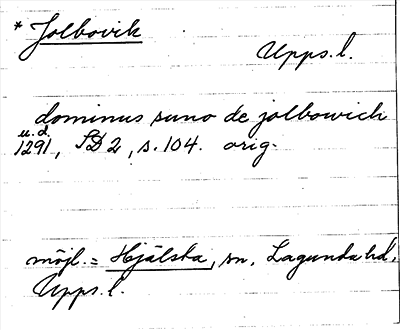 * Jolbovik
Upps.l.
dominus suno de jolbowich
u.d.
1291, SD 2, s. 104. orig.
möjl. = Hjälsta, sn, Lagunda hd,
Upps.l.